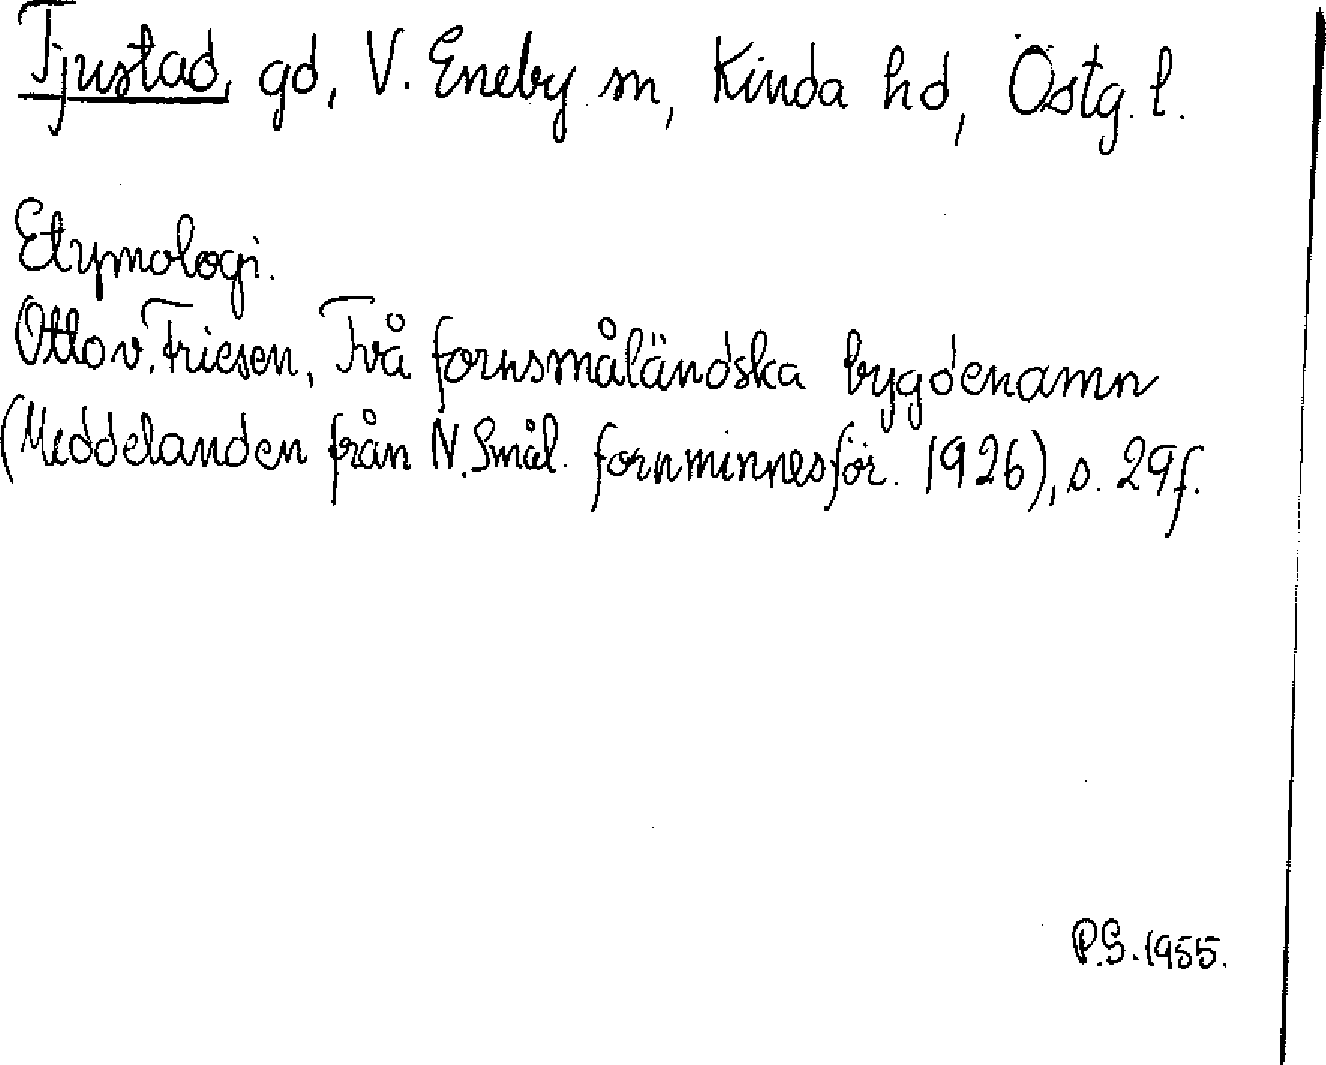 Tjustad, gd, V. Eneby sn, Kinda hd, Östg. l.
Etymologi.
Otto v. Friesen, Två fornsmåländska bygdenamn
(Meddelanden från N. Smål. fornminnesför. 1926), s. 29f.
P.S. 1955.